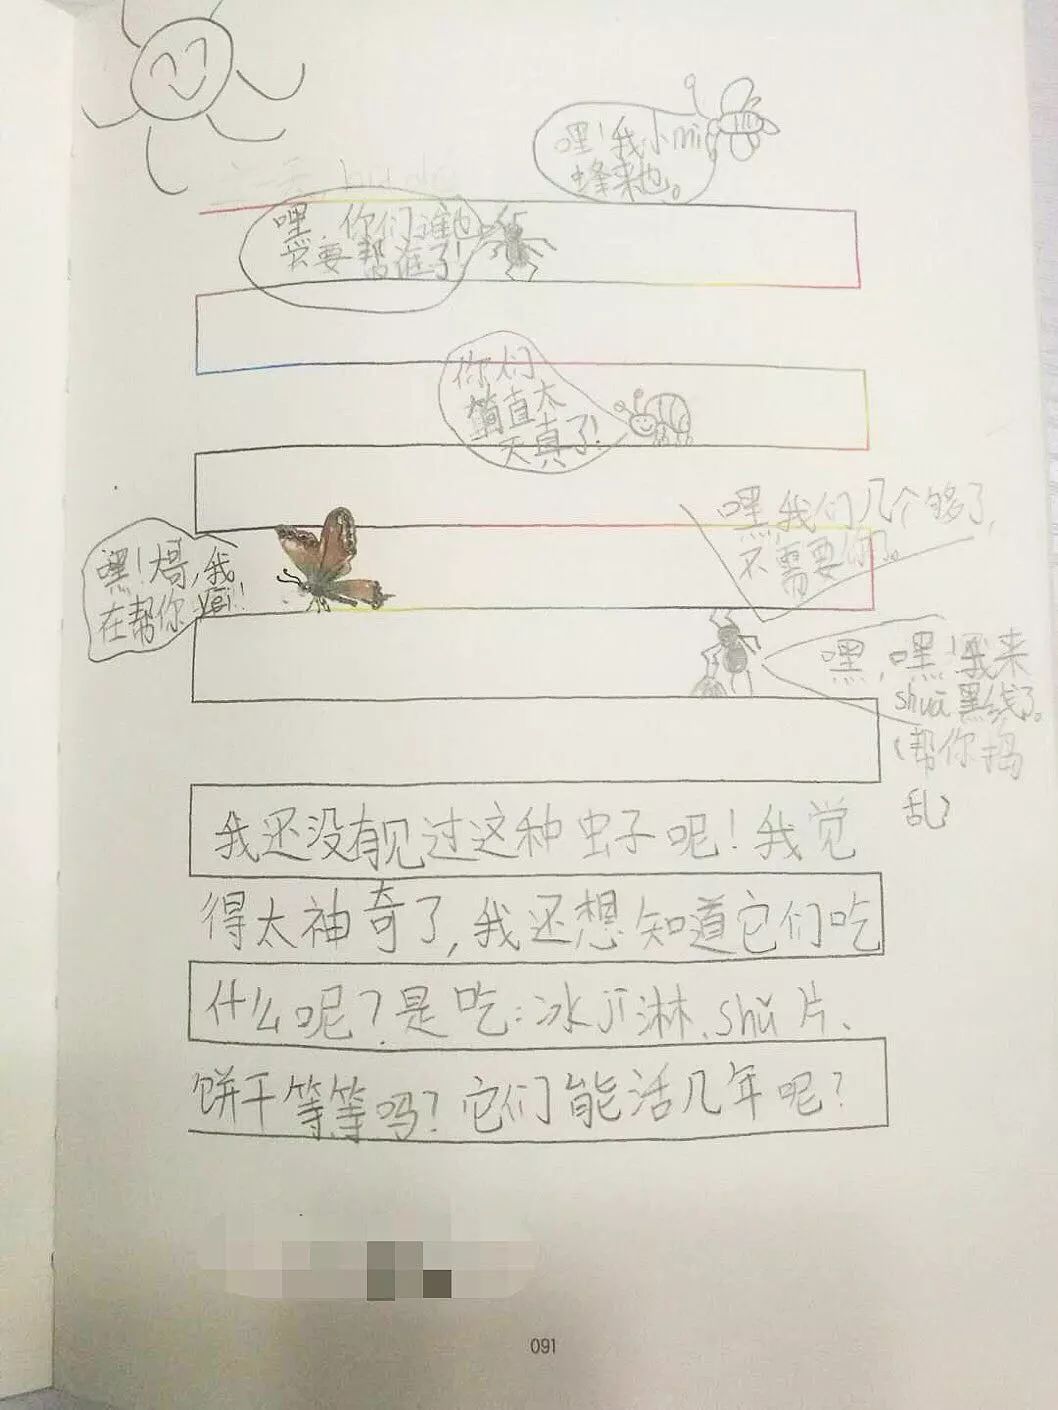 嘿!我小mì
蜂来也。
嘿,你们谁也
不要帮谁了!
你们
简直太
天真了!
嘿,我们几个够了,
不需要你。
嘿!大哥,我
在帮你
嘿,嘿!我来
shuā黑线了。
(帮你捣
乱)
我还没有见过这种虫子呢!我觉
得太神奇了,我还想知道它们吃
什么呢?是吃:冰jī淋、shǔ片、
饼干等等吗?它们能活几年呢?
091